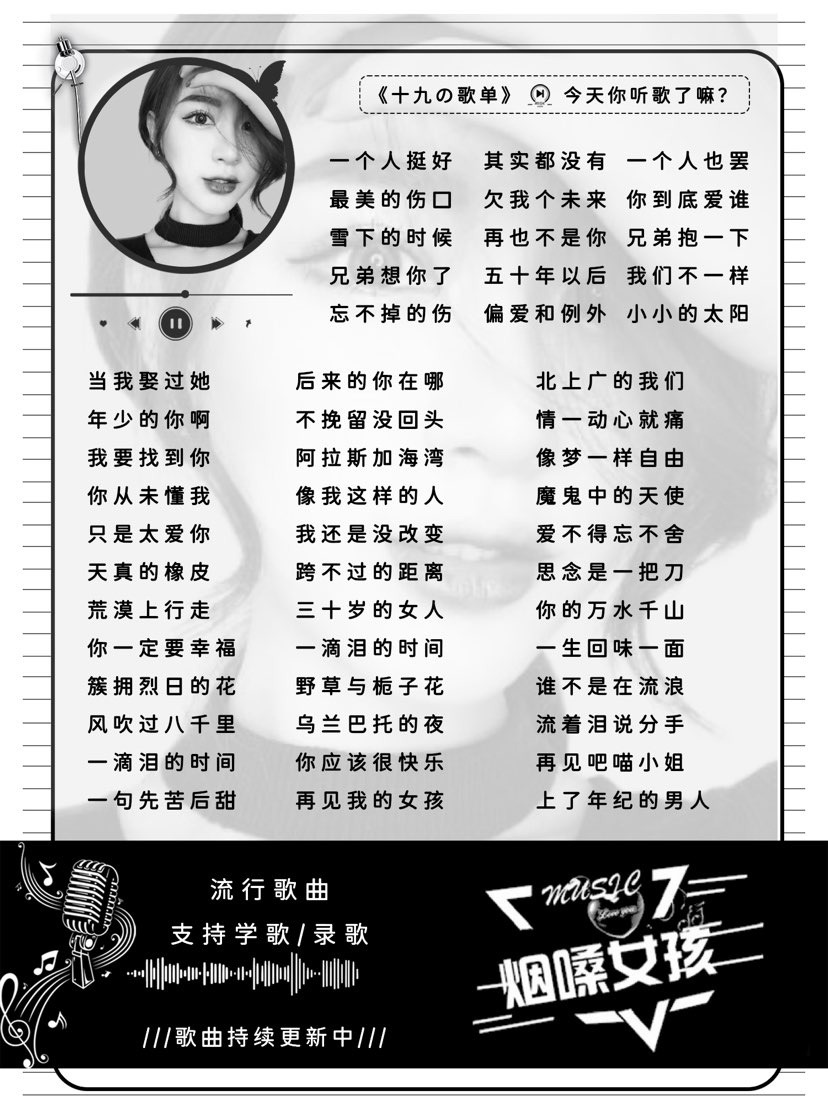 《十九の歌单》 今天你听歌了嘛？
一个人挺好 其实都没有 一个人也罢
最美的伤口 欠我个未来 你到底爱谁
雪下的时候 再也不是你 兄弟抱一下
兄弟想你了 五十年以后 我们不一样
忘不掉的伤 偏爱和例外 小小的太阳
当我娶过她 后来的你在哪 北上广的我们
年少的你啊 不挽留没回头 情一动心就痛
我要找到你 阿拉斯加海湾 像梦一样自由
你从未懂我 像我这样的人 魔鬼中的天使
只是太爱你 我还是没改变 爱不得忘不舍
天真的橡皮 跨不过的距离 思念是一把刀
荒漠上行走 三十岁的女人 你的万水千山
你一定要幸福 一滴泪的时间 一生回味一面
簇拥烈日的花 野草与栀子花 谁不是在流浪
风吹过八千里 乌兰巴托的夜 流着泪说分手
一滴泪的时间 你应该很快乐 再见吧喵小姐
一句先苦后甜 再见我的女孩 上了年纪的男人
流行歌曲
支持学歌/录歌
///歌曲持续更新中///
MUSIC
Love you
烟嗓女孩